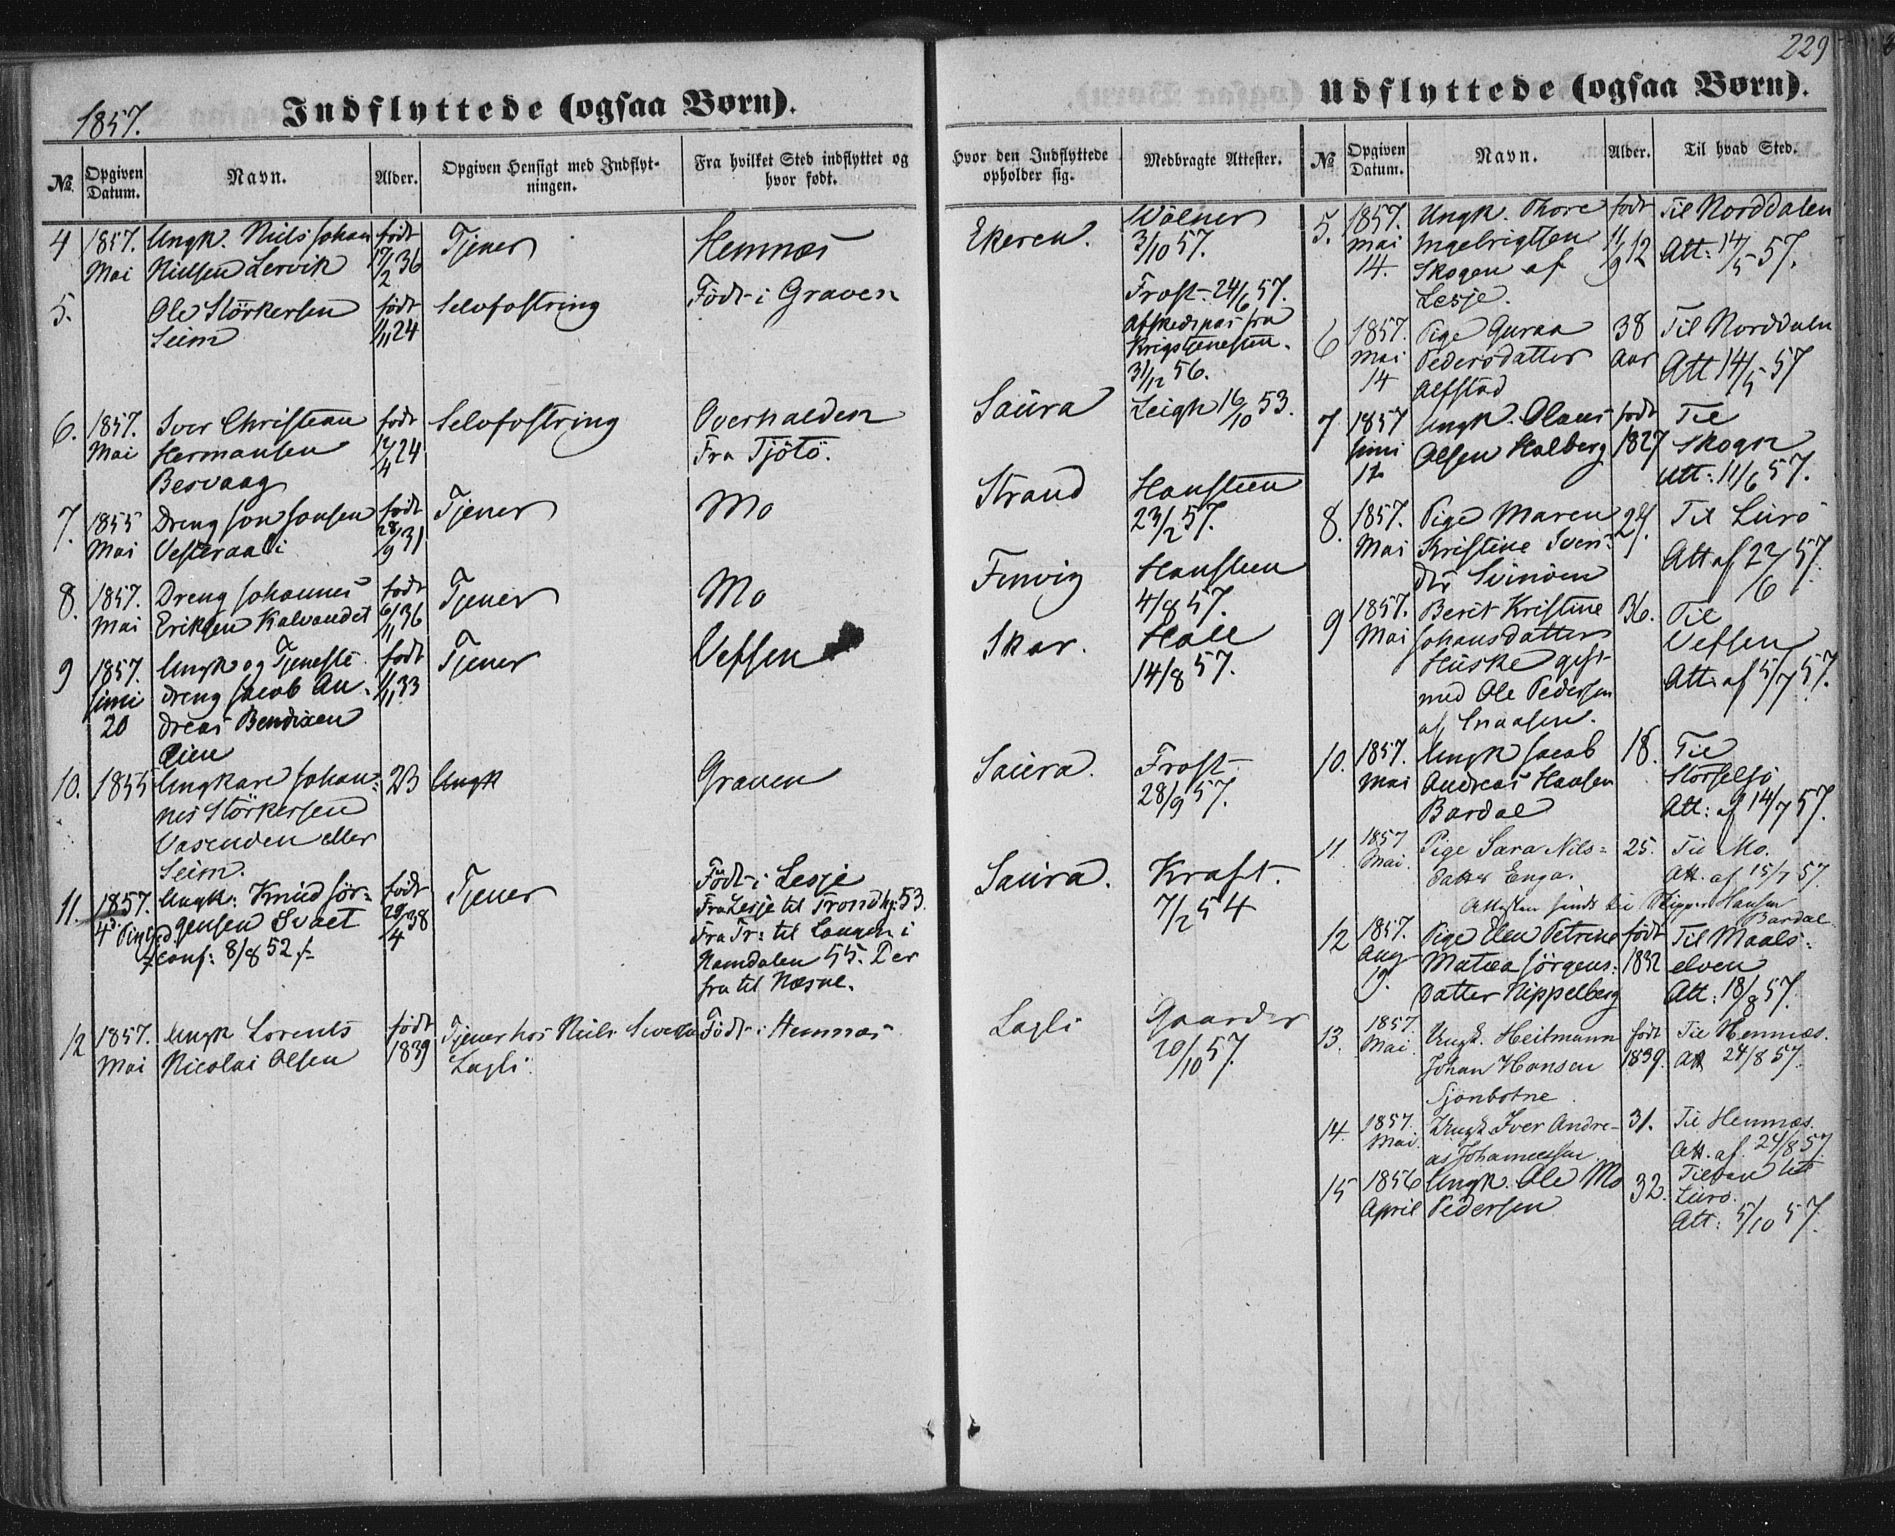 229
1857.
Indflyttede (ogsaa Børn).
№
Opgiven Datum.
Navn.
Alder.
Opgiven Hensigt med Indflyt-
ningen.
Fra hvilket Sted indflyttet og
hvor født.
Hvor den Indflyttede
opholder sig.
Medbragte Attester.
4 1857. Ungk. Niels Johan født Tjener Hemnæs Ekeren. Wölner
Mai Nielsen Lervik 17/2 36 3/10 57.
5. Ole Störkersen født Selvfostring Födt i Graven Frost. 24/6 57.
Seim 1/11 24 Afskedspas fra
Krigstjenesten.
31/12 56.
6. 1857. Iver Christian født Selvfostring Overhalden Saura Leigh 16/10 53.
Mai Hermansen 12/4 24 Fra Tjötö.
Besvaag
7. 1855 Dreng Jon Jonsen født Tjener Mo Strand Hansteen
Mai Vesteraali 28/9 31 23/2 57.
8. 1857. Dreng Johannes født Tjener Mo Finvig Hansteen
Mai Eriksen Kalvandet 6/11 36 4/8 57.
9 1857. Ungk og Tjeneste født Tjener Vefsen Skar. Hall
Juni dreng Jacob An- 1/11 33 14/8 57.
20 dreas Bendixen
Eien
10. 1855 Ungkare Johan- 23 Ungk Graven Saura. Frost
nes Störkersen 28/9 57.
Vasenden eller
Seim.
11. 1857. Ungk: Knud Jör- født Tjener Födt i Lesje Saura. Kraft.
gensen Svaet 29/4 38 Fra Lesje til Trondhj: 53. 7/2 54
conf: 8/8 52 Fra Tr: til i
Namdalen 55. Der
fra til Næsne.
12 1857. Ungk Lorents født Tjener hos Niels Födt i Hemnæs Lagli Gaarder
Mai Nicolai Olsen 1839 Lagli. 20/10 57.
Udflyttede (ogsaa Børn).
№
Opgiven Datum.
Navn.
Alder.
Til hvad Sted.
5. 1857. Ungk. Thore født Til Norddalen
Mai Ingebrigtsen 11/9 12 Att: 14/5 57.
14. Skogen af
Lesje.
6 1857. Pige Guraa 38 Til Norddalen
Mai Pedersdatter Aar Att 14/5 57
14 Alfstad
7 1857 Ungk. Olaus født Til
Juni Olsen Halberg 1827 Skogn
12 Att: 11/6 57.
8. 1857. Pige Maren 24. Til Lurö
Mai Kristine Ivers- Att af 22/6 57.
dtr Svinöen
9 1857. Berit Kristine 36. Til
Mai Johansdatter Vefsen
Huske gift Att. af 5/7 57.
med Ole Pedersen
af Snaasen.
10. 1857. Ungk Jacob 18. Til
Mai Andreas Hansen
Bardal Att: af 14/7 57.
11. 1857 Pige Sara Nils- 25. Til Mo.
Mai. Datter Enga. Att. af 15/7 57.
Attesten sendt til Skipper Hansen
Bardal
12 1857. Pige Elen Petrine født Til Maals-
Aug Matea Jörgens- 1832 elven
19. datter Nippelberg Att: 18/8 57.
13. 1857. Ungk. Heitmann født Til Hemnæs.
Mai. Johan Hansen 1839. Att 24/8 57.
Sjonbotne.
14. 1857. Ungk Iver Andre- 31. Til Hemnæs.
Mai. as Johannessen. Att. af 24/8 57.
15 1856 Ungk. Ole Mo 32. til
April Pedersen Lurö.
Att: 5/10 57.